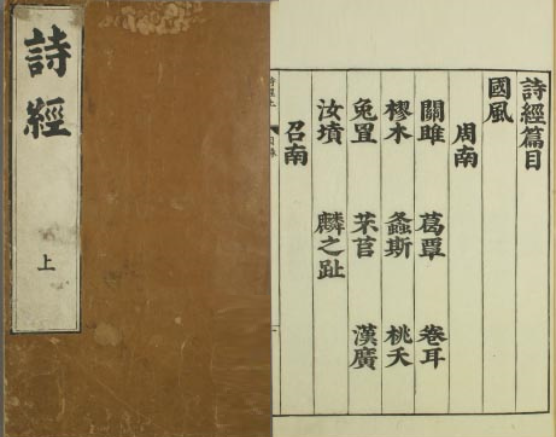 詩經
上
詩經篇目
國風
周南
關雎 葛覃 卷耳
樛木 螽斯 桃夭
兔罝 芣苢 漢廣
汝墳 麟之趾
召南